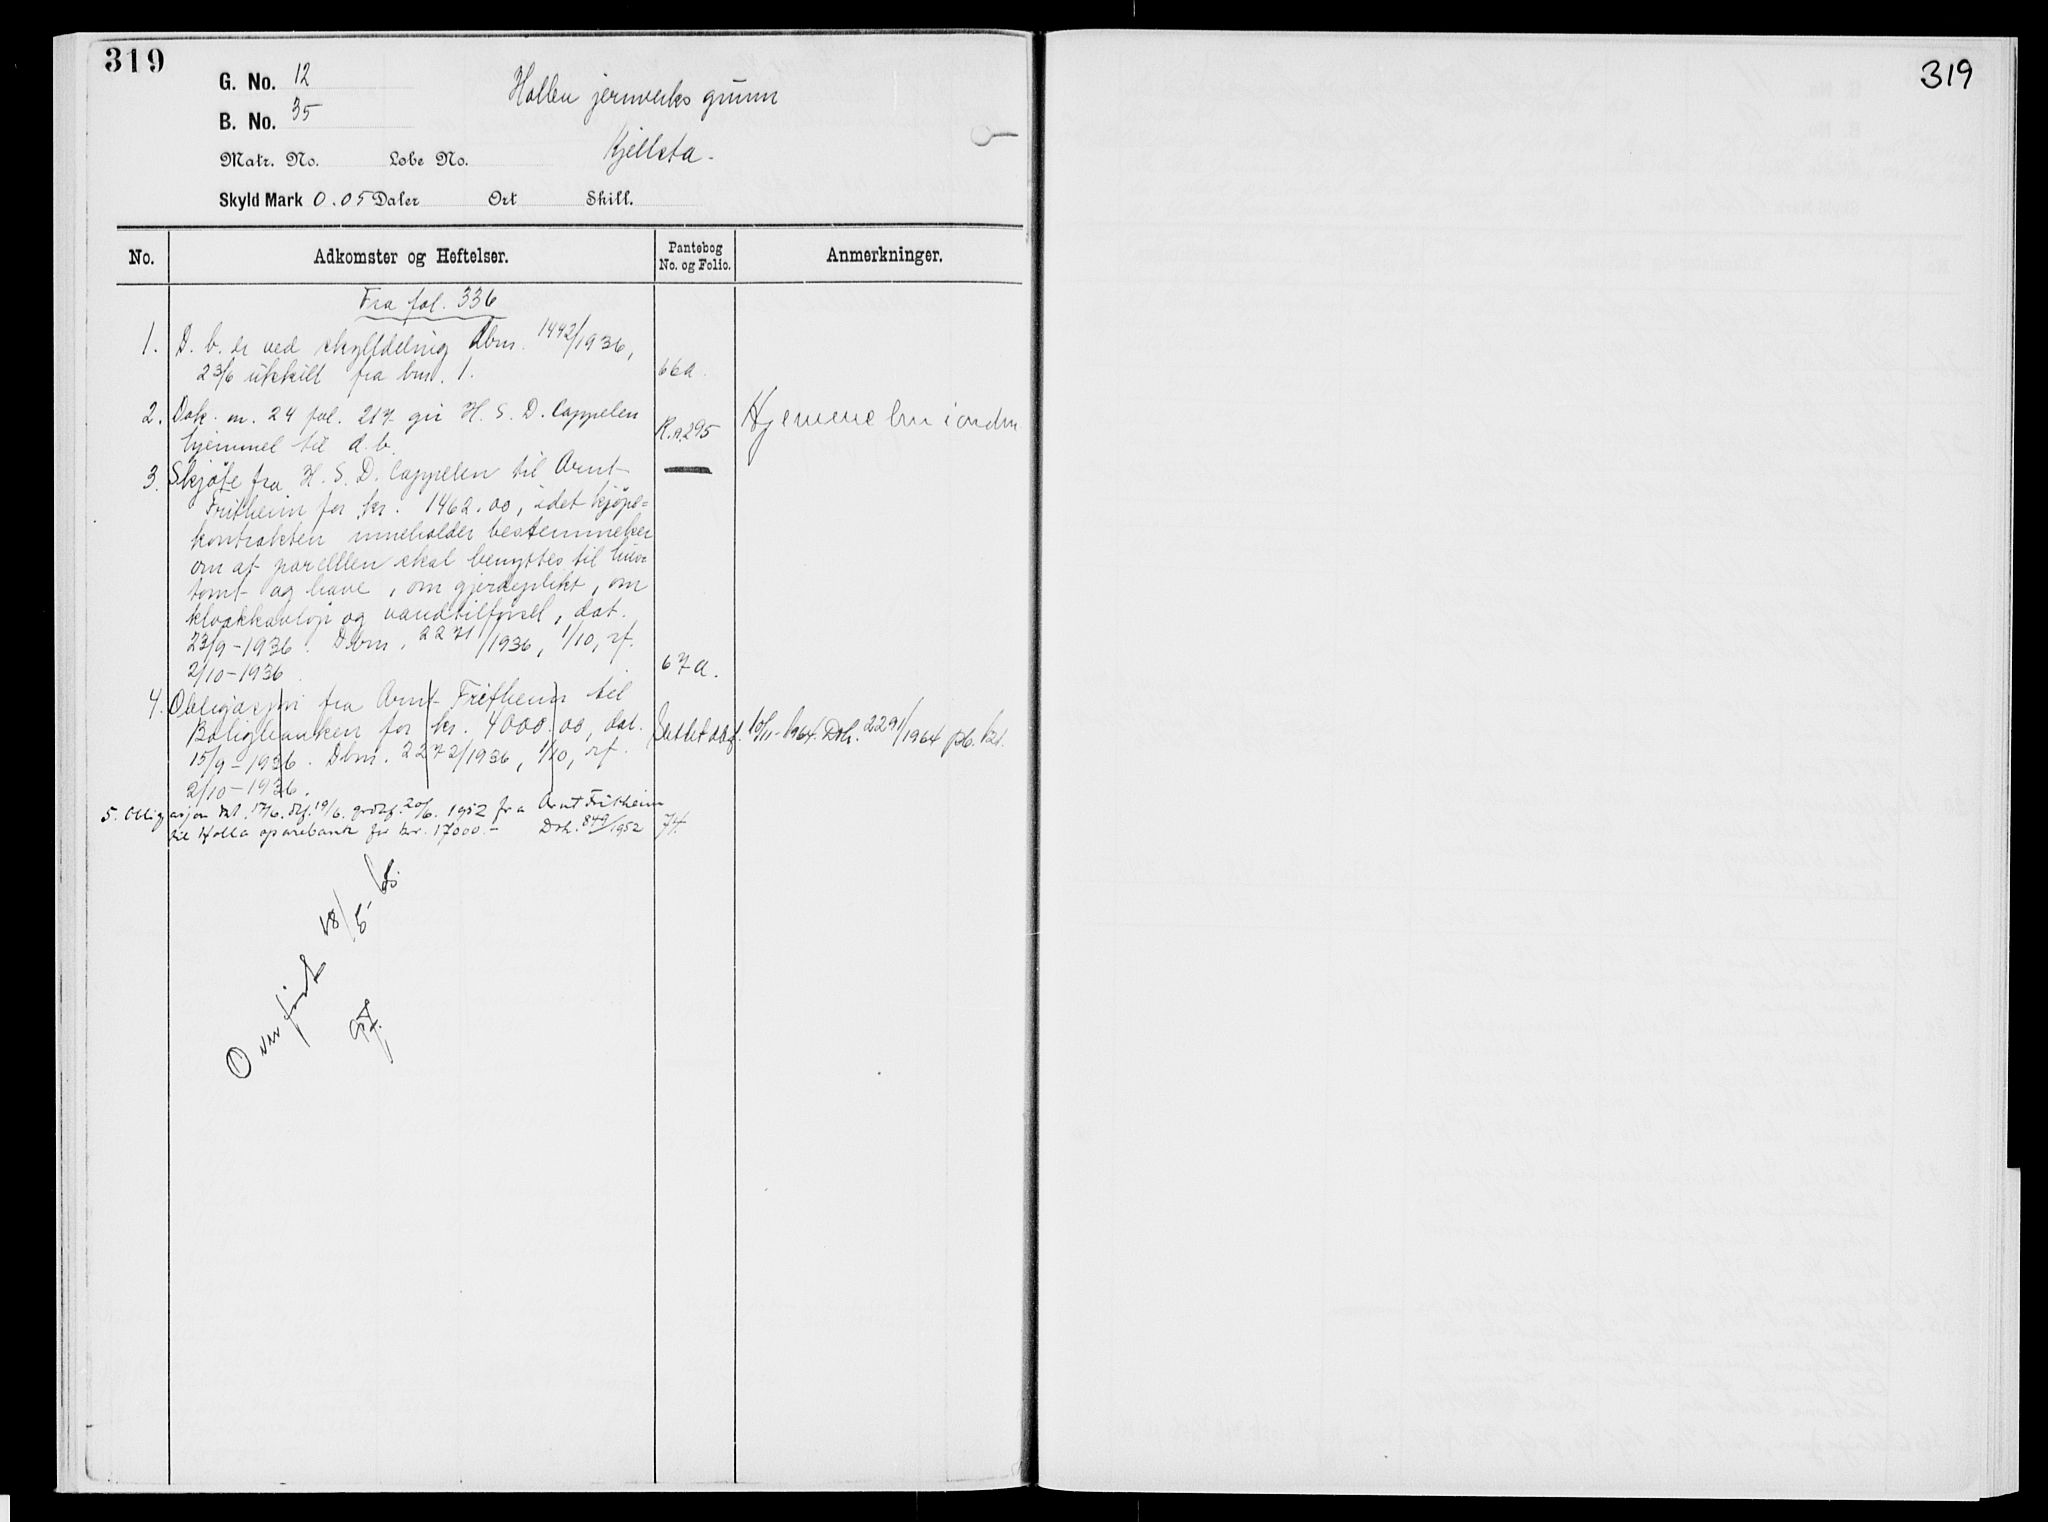 319
G. No. 12
Hollen jernverks grunn
B. No. 35
Kjellsta.
Matr. No. Løbe No.
Skyld Mark 0.05 Daler Ort Skill.
No. Adkomster og Heftelser. Pantebog No. og Folio. Anmerkninger.
Fra fol. 336
1. D. b. er ved skylddeling dbnr. 1442/1936,
23/6 utskilt fra bnr. 1. 66a.
2. Dok. nr. 24 fol. 217 gir H. S. D. Cappelen
hjemmel til d. b. R.a.295 Hjemmelen i orden
3. Skjøte fra H. S. D. Cappelen til Arnt
Fritheim for kr. 1462.00, idet kjøpe-
kontrakten inneholder bestemmelser
om at parcellen skal benyttes til hus-
tomt og have, om gjerdeplikt, om
kloakkavløp og vandtilførsel, dat.
23/9-1936. Dbnr. 2271/1936, 1/10, rf.
2/10-1936. 67a.
4. Obligasjon fra Arnt Fritheim til
Boligbanken for kr. 4000.00, dat.
15/9-1936. Dbnr. 2272/1936, 1/10, rf.
2/10-1936.
Slettet dagf. 10/11-1964. Dnr. 2291/1964 pb.
5. Obligasjon dat. 17/6. dgf. 19/6. grbgf. 20/6. 1952 fra Arnt Fritheim
til Holla sparebank for kr. 17000.- Dnr. 849/1952 74.
Overført 18/5-65
319